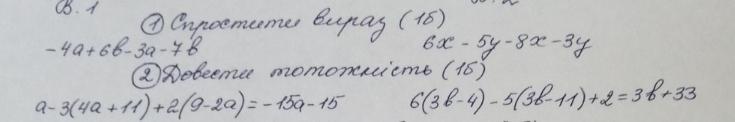 В. 1
① Спростити вираз (1б)
-4a+6b-3a-7b 6x-5y-8x-3y
② Довести тотожність (1б)
a-3(4a+11)+2(9-2a)=-15a-15 6(3b-4)-5(3b-11)+2=3b+33